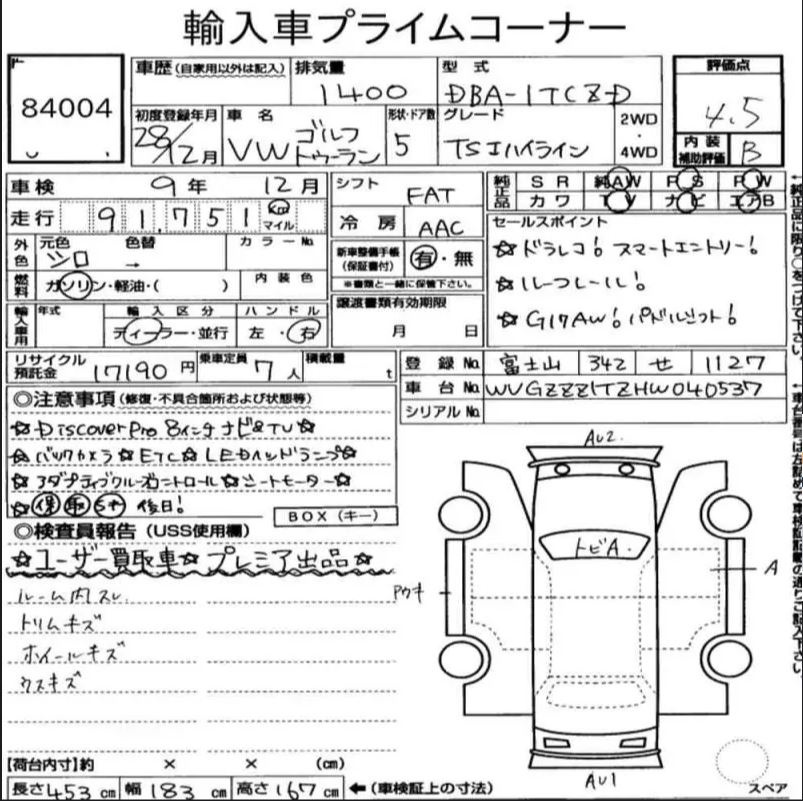 輸入車プライムコーナー
84004
車歴(自家用以外は記入) 排気量 1400 型式 DBA-1TCZD
評価点 4.5
初度登録年月 28/12月 車名 VW ゴルフ トゥーラン 形状・ドア数 5 グレード TSIハイライン 2WD・4WD
内装補助評価 B
車検 9年 12月 シフト FAT
純正品 SR 純AW PS PW
カワ TV ナビ エアB
走行 91.751 Km マイル 冷房 AAC
外色 元色 シロ 色替 → カラーNo.
燃料 ガソリン・軽油・( ) 内装色
新車整備手帳(保証書付) 有・無
※書類と一緒に保管下さい。
セールスポイント
☆ドラレコ! スマートエントリー!
☆ルーフレール!
☆G17AW! パドルシフト!
輸入車用 年式 輸入区分 ディーラー・並行 ハンドル 左・右
譲渡書類有効期限 月 日
リサイクル預託金 17190円 乗車定員 7人 積載量 t
登録No. 富士山 342 せ 1127
車台No. WVGZZZ1TZHW040537
シリアルNo.
◎注意事項(修復・不具合箇所および状態等)
☆Discover Pro 8インチナビ&TV☆
☆バックカメラ☆ETC☆LEDヘッドランプ☆
☆アダプティブクルーズコントロール☆シートモーター☆
☆保 取 ST 後日!
BOX(キー)
◎検査員報告(USS使用欄)
☆ユーザー買取車☆プレミア出品☆
ルーム内スレ
トリムキズ
ホイールキズ
ウスキズ
AU2.
トビA.
A
Pウキ
AU1
スペア
【荷台内寸】約 × × (cm)
長さ453cm 幅183cm 高さ167cm ←(車検証上の寸法)
←純正品に限り○をつけて下さい。
←車台番号は左詰めで車検証記載の通りご記入下さい。